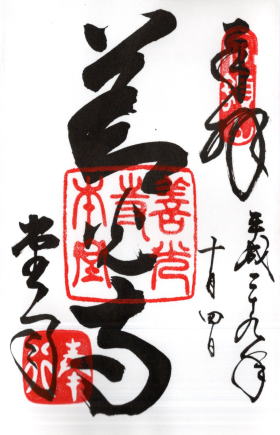 奉拝
平成二十九年
十月四日
善光寺
善光
寺
本堂
堂司